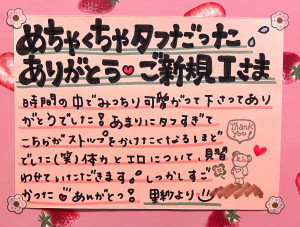 めちゃくちゃタフだった
ありがとう♥ご新規Iさま
時間の中でみっちり可愛がって下さってあり
がとうでした！あまりにタフすぎて
こちらがストップをかけたくなるほど
でした(笑)体力とエロについて、見習
わせていただきます。しっかしすご
かった♡ありがとっ！里紗より
Thank
you!